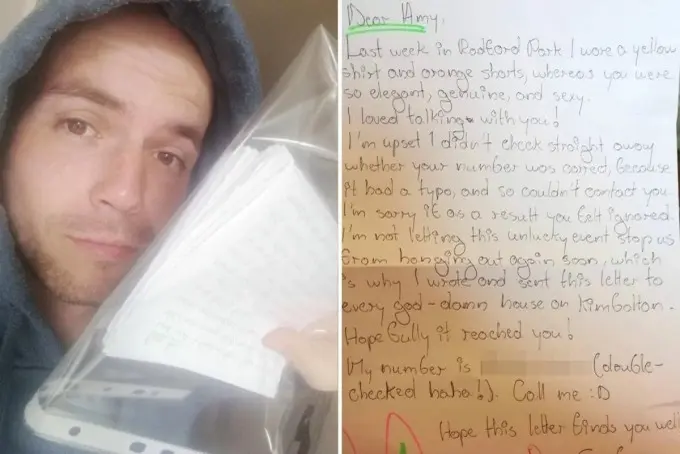 Dear Amy,
Last week in Radford Park I wore a yellow
shirt and orange shorts, whereas you were
so elegant, genuine, and sexy.
I loved talking with you!
I'm upset I didn't check straight away
whether your number was correct, because
it had a typo, and so couldn't contact you.
I'm sorry if as a result you felt ignored.
I'm not letting this unlucky event stop us
from hanging out again soon, which
is why I wrote and sent this letter to
every god-damn house on Kimbolton.
Hopefully it reached you!
My number is (double-
checked haha!). Call me :D
Hope this letter finds you well